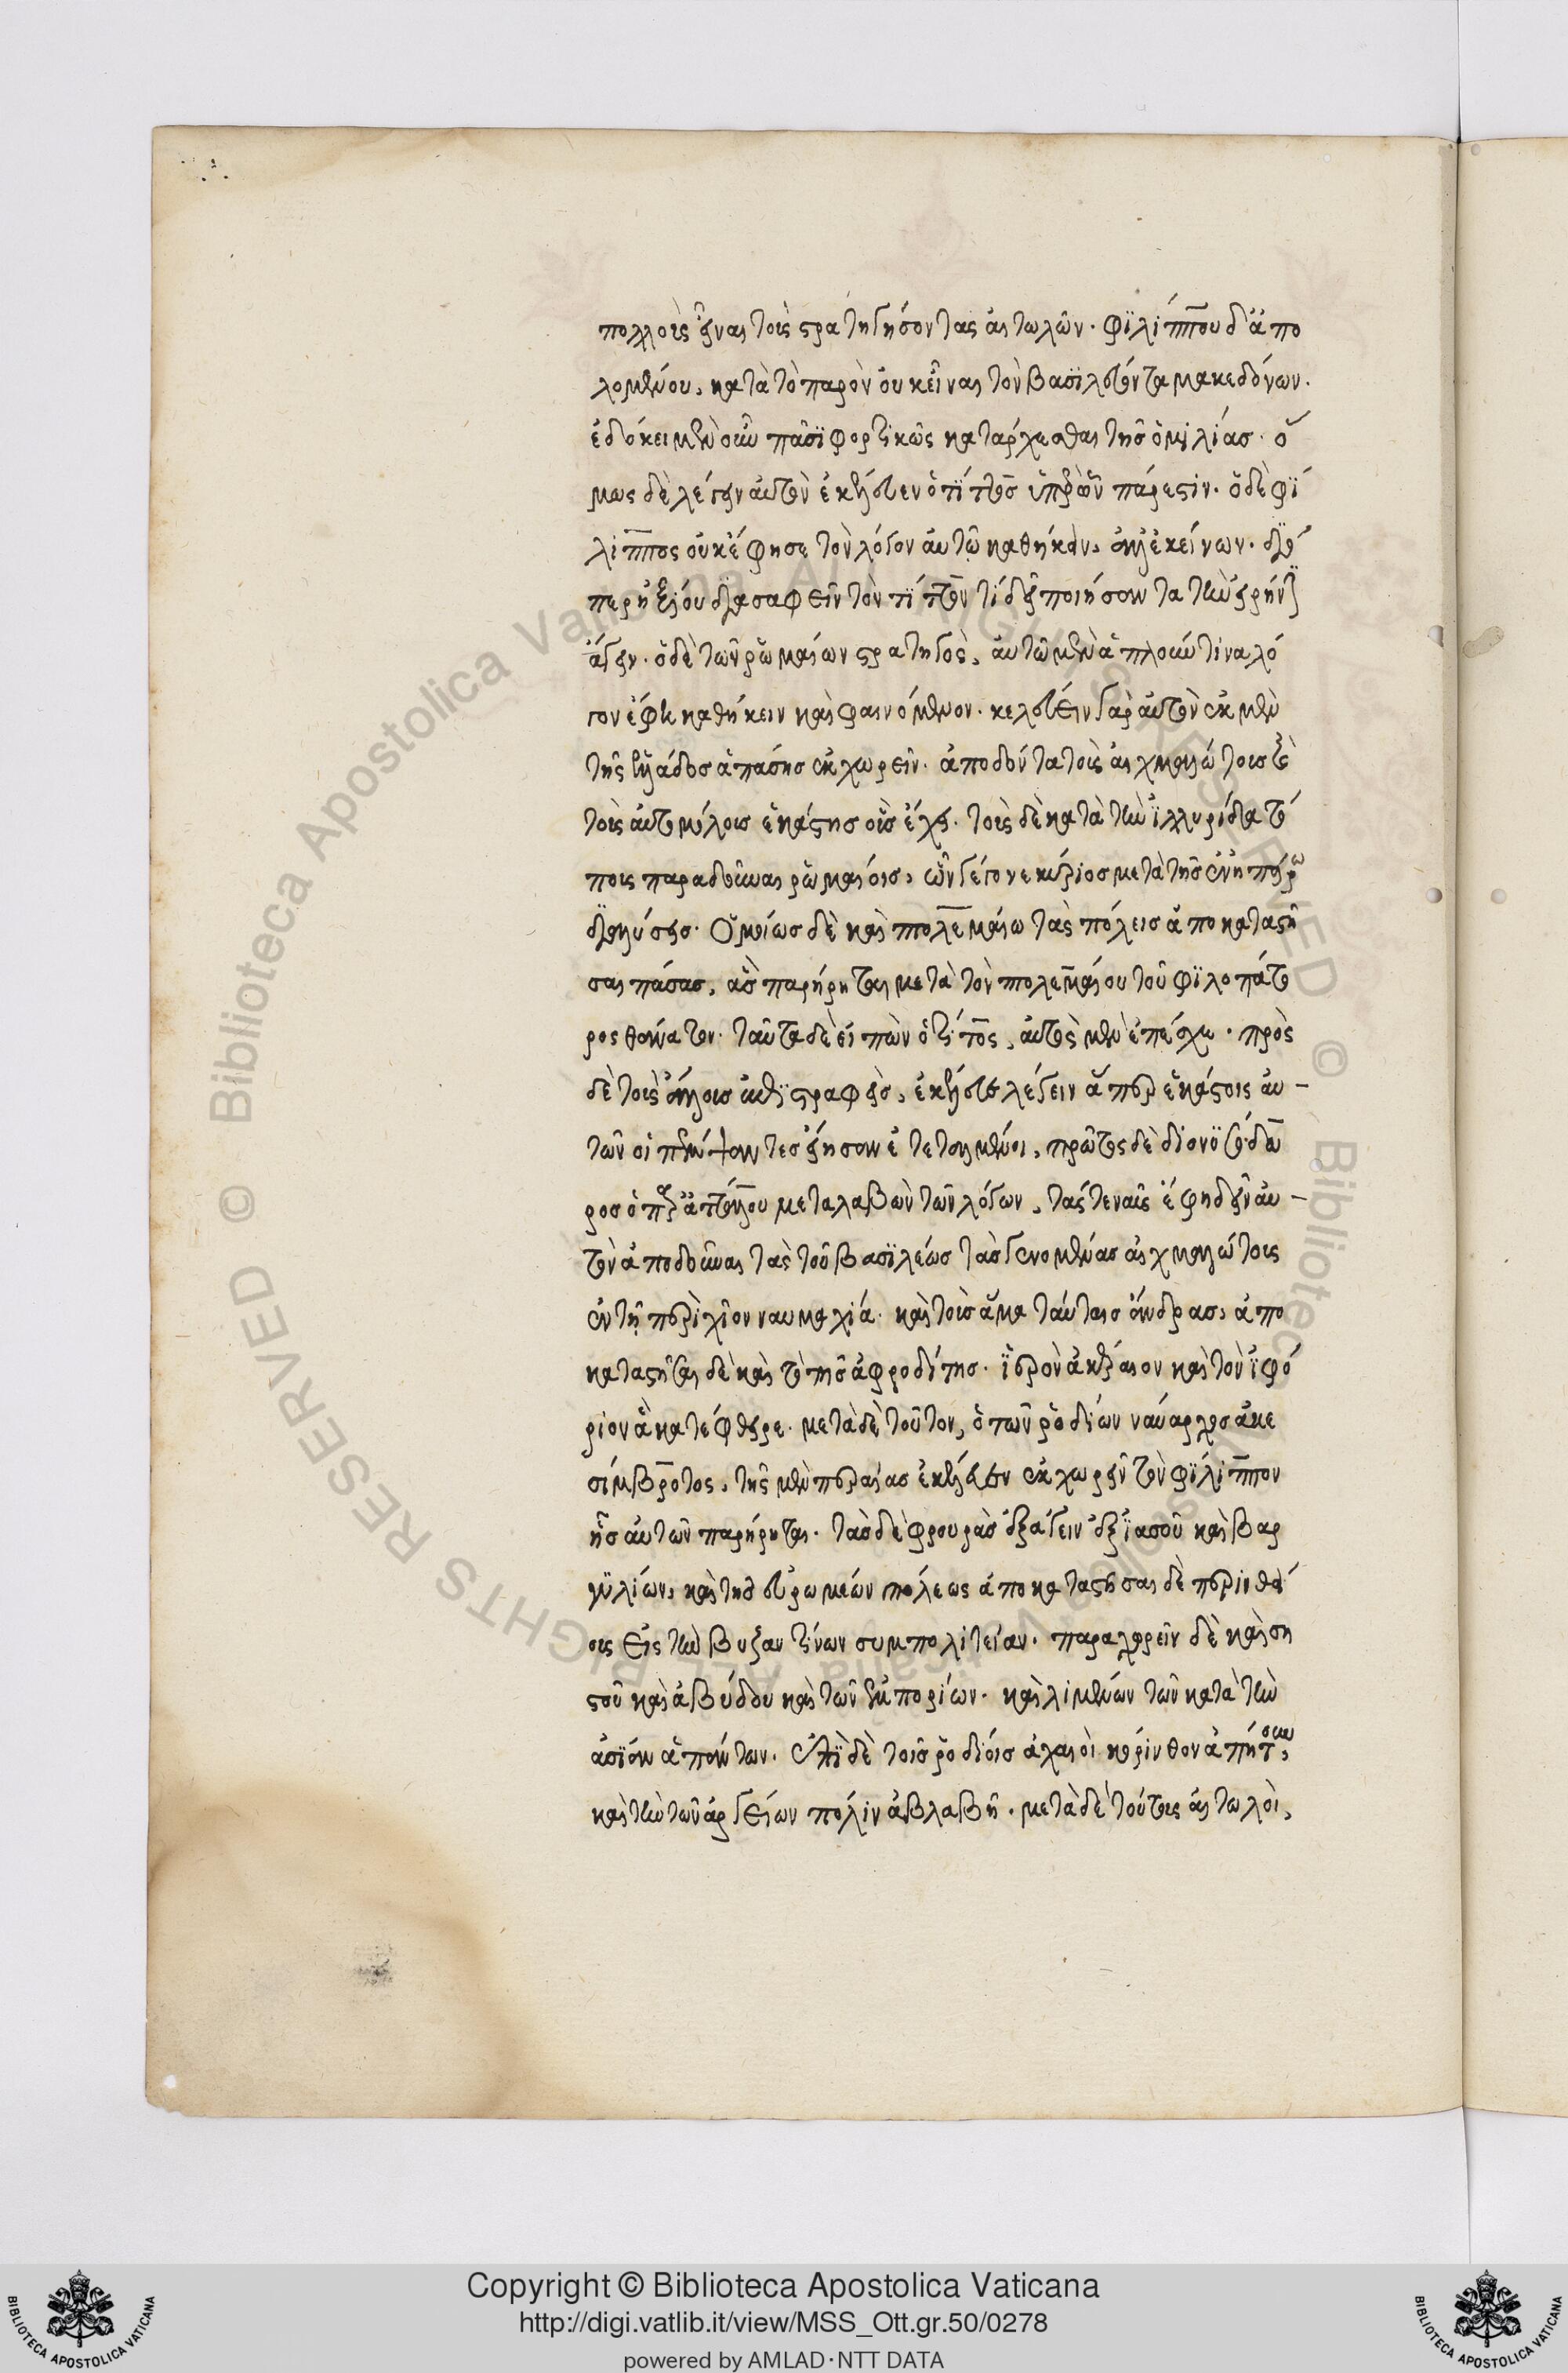 πολλοὺς εἶναι τοὺς στρατηγήσοντας αἰτωλῶν. φϊλίππου δ' ἀπο
λομένου, κατὰ τὸ παρὸν οὐκ εἶναι τὸν βασϊλεύοντα μακεδόνων.
ἐδόκει μὲν οὖν πᾶσϊ φορτικῶς κατάρχεσθαι τῆς ὁμιλίας. ὅ
μως δὲ λέγειν αὐτὸν ἐκέλευεν ὁ τίτος ὑπὲρ ὧν πάρεστιν. ὁ δὲ φϊ
λιππος οὐκ ἔφησε τὸν λόγον αὐτῶ καθήκειν, ἀλλ' ἐκείνων. διό
περ ἠξίου διασαφεῖν τὸν τίτον τί δεῖ ποιήσαντα τὴν εἰρήνην
ἄγειν. ὁ δὲ τῶν ῥωμαίων στρατηγὸς, αὐτῶ μὲν ἁπλοῦν τινα λό
γον ἔφη καθήκειν καὶ φαινόμενον. κελεύειν γὰρ αὐτὸν ἐκ μὲν
τῆς ἑλλάδος ἁπάσης ἐκχωρεῖν. ἀποδόντα τοὺς αἰχμαλώτους καὶ
τοὺς αὐτομόλους ἑκάστης οὓς ἔχει. τοὺς δὲ κατὰ τὴν ἰλλυρίδα τό
πους παραδοῦναι ῥωμαίοις, ὧν γέγονε κύριος μετὰ τῆς ἐν ἠπείρω
διαλύσεις. Ὁμοίως δὲ καὶ πτολεμαίω τὰς πόλεις ἀποκαταστῆ
σαι πάσας, ἃς παρήρηται μετὰ τὸν πτολεμαίου τοῦ φϊλοπάτο
ρος θάνατον. ταῦτα δὲ εἰπὼν ὁ τίτος, αὐτὸς μὲν ἐπέσχε. πρὸς
δὲ τοὺς ἄλλους ἐπιστραφεὶς, ἐκέλευε λέγειν ἅπερ ἑκάστοις αὐ-
τῶν οἱ πέμψαντες εἴησαν ἐντεταλμένοι, πρῶτος δὲ διονυσόδω
ρος ὁ παρ' ἀττάλου μεταλαβὼν τὸν λόγον, τάς τε ναῦς ἔφη δεῖν αὐ-
τὸν ἀποδοῦναι τὰς τοῦ βασϊλέως τὰς γενομένας αἰχμαλώτους
ἐν τῆ περὶ χῖον ναυμαχία. καὶ τοὺς ἅμα ταύταις ἄνδρας, ἀπο
καταστῆσαι δὲ καὶ τὸ τῆς ἀφροδίτης. ἱερὸν ἀκέραιον καὶ τὸ νϊφό
ριον ἃ κατέφθειρε. μετὰ δὲ τοῦτον, ὁ τῶν ῥοδίων ναύαρχος ἀκε
σίμβροτος, τῆς μὲν περαίας ἐκέλευεν ἐκχωρεῖν τὸν φϊλιππον
ἧς αὐτῶν παρήρηται. τὰς δὲ φρουρὰς ἐξάγειν ἐξ ἰασοῦ καὶ βαρ
γυλίων, καὶ τῆς εὐρωμέων πόλεως ἀποκαταστῆσαι δὲ περινθί
ους εἰς τὴν βυζαντίνων συμπολιτείαν. παραχωρεῖν δὲ καὶ ση
στοῦ καὶ ἀβύδου καὶ τῶν ἐμπορίων. καὶ λιμένων τῶν κατὰ τὴν
ἀσίαν ἁπάντων. Ἐπὶ δὲ τοῖς ῥοδίοις ἀχαιοὶ κόρινθον ἀπήτουν,
καὶ τὴν τῶν ἀργείων πόλιν ἀβλαβῆ. μετὰ δὲ τούτους αἰτωλοὶ,
Copyright © Biblioteca Apostolica Vaticana
http://digi.vatlib.it/view/MSS_Ott.gr.50/0278
powered by AMLAD·NTT DATA